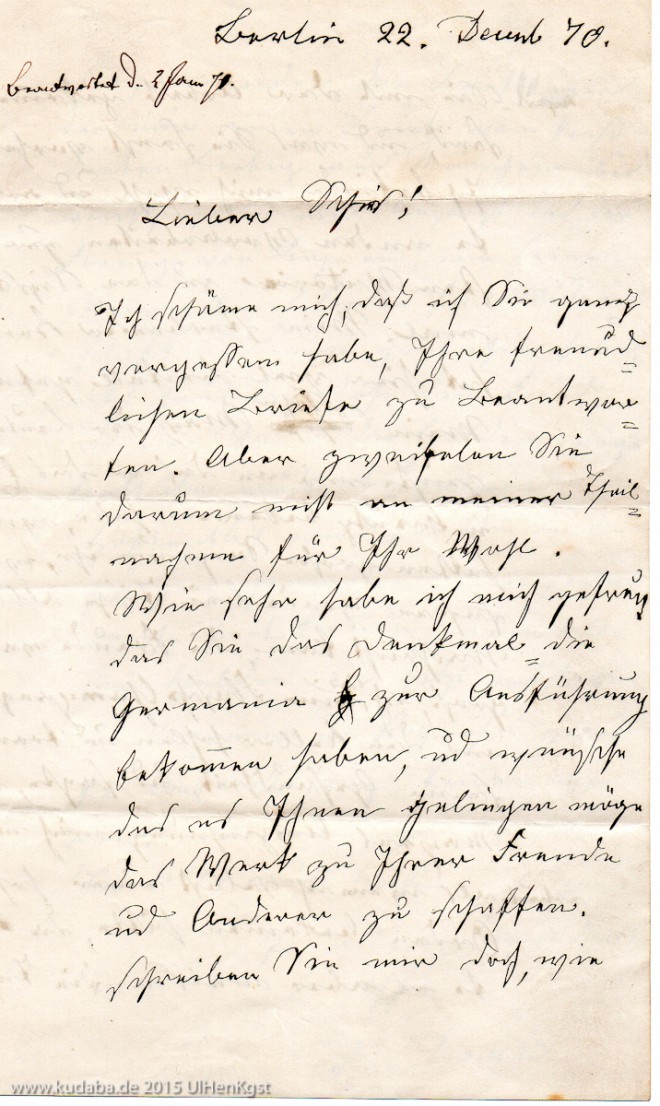 Berlin 22. Decemb 70.
Beantwortet d. 2 Jan 71.
Lieber !
Ich schäme mich, daß ich Sie ganz
vergessen habe, Ihre freund=
lichen Briefe zu Beantwor=
ten. Aber zweifelen Sie
darum nicht an meiner Theil=
nahme für Ihr Wohl.
Wie sehr habe ich mich gefreut
das Sie das Denkmal= die
Germania zur Ausführung
bekommen haben, ud wünsche
das es Ihnen gelingen möge
das Werk zu Ihrer Freude
ud Anderer zu schaffen.
schreiben Sie mir doch, wie
www.kudaba.de 2015 UlHenKgst